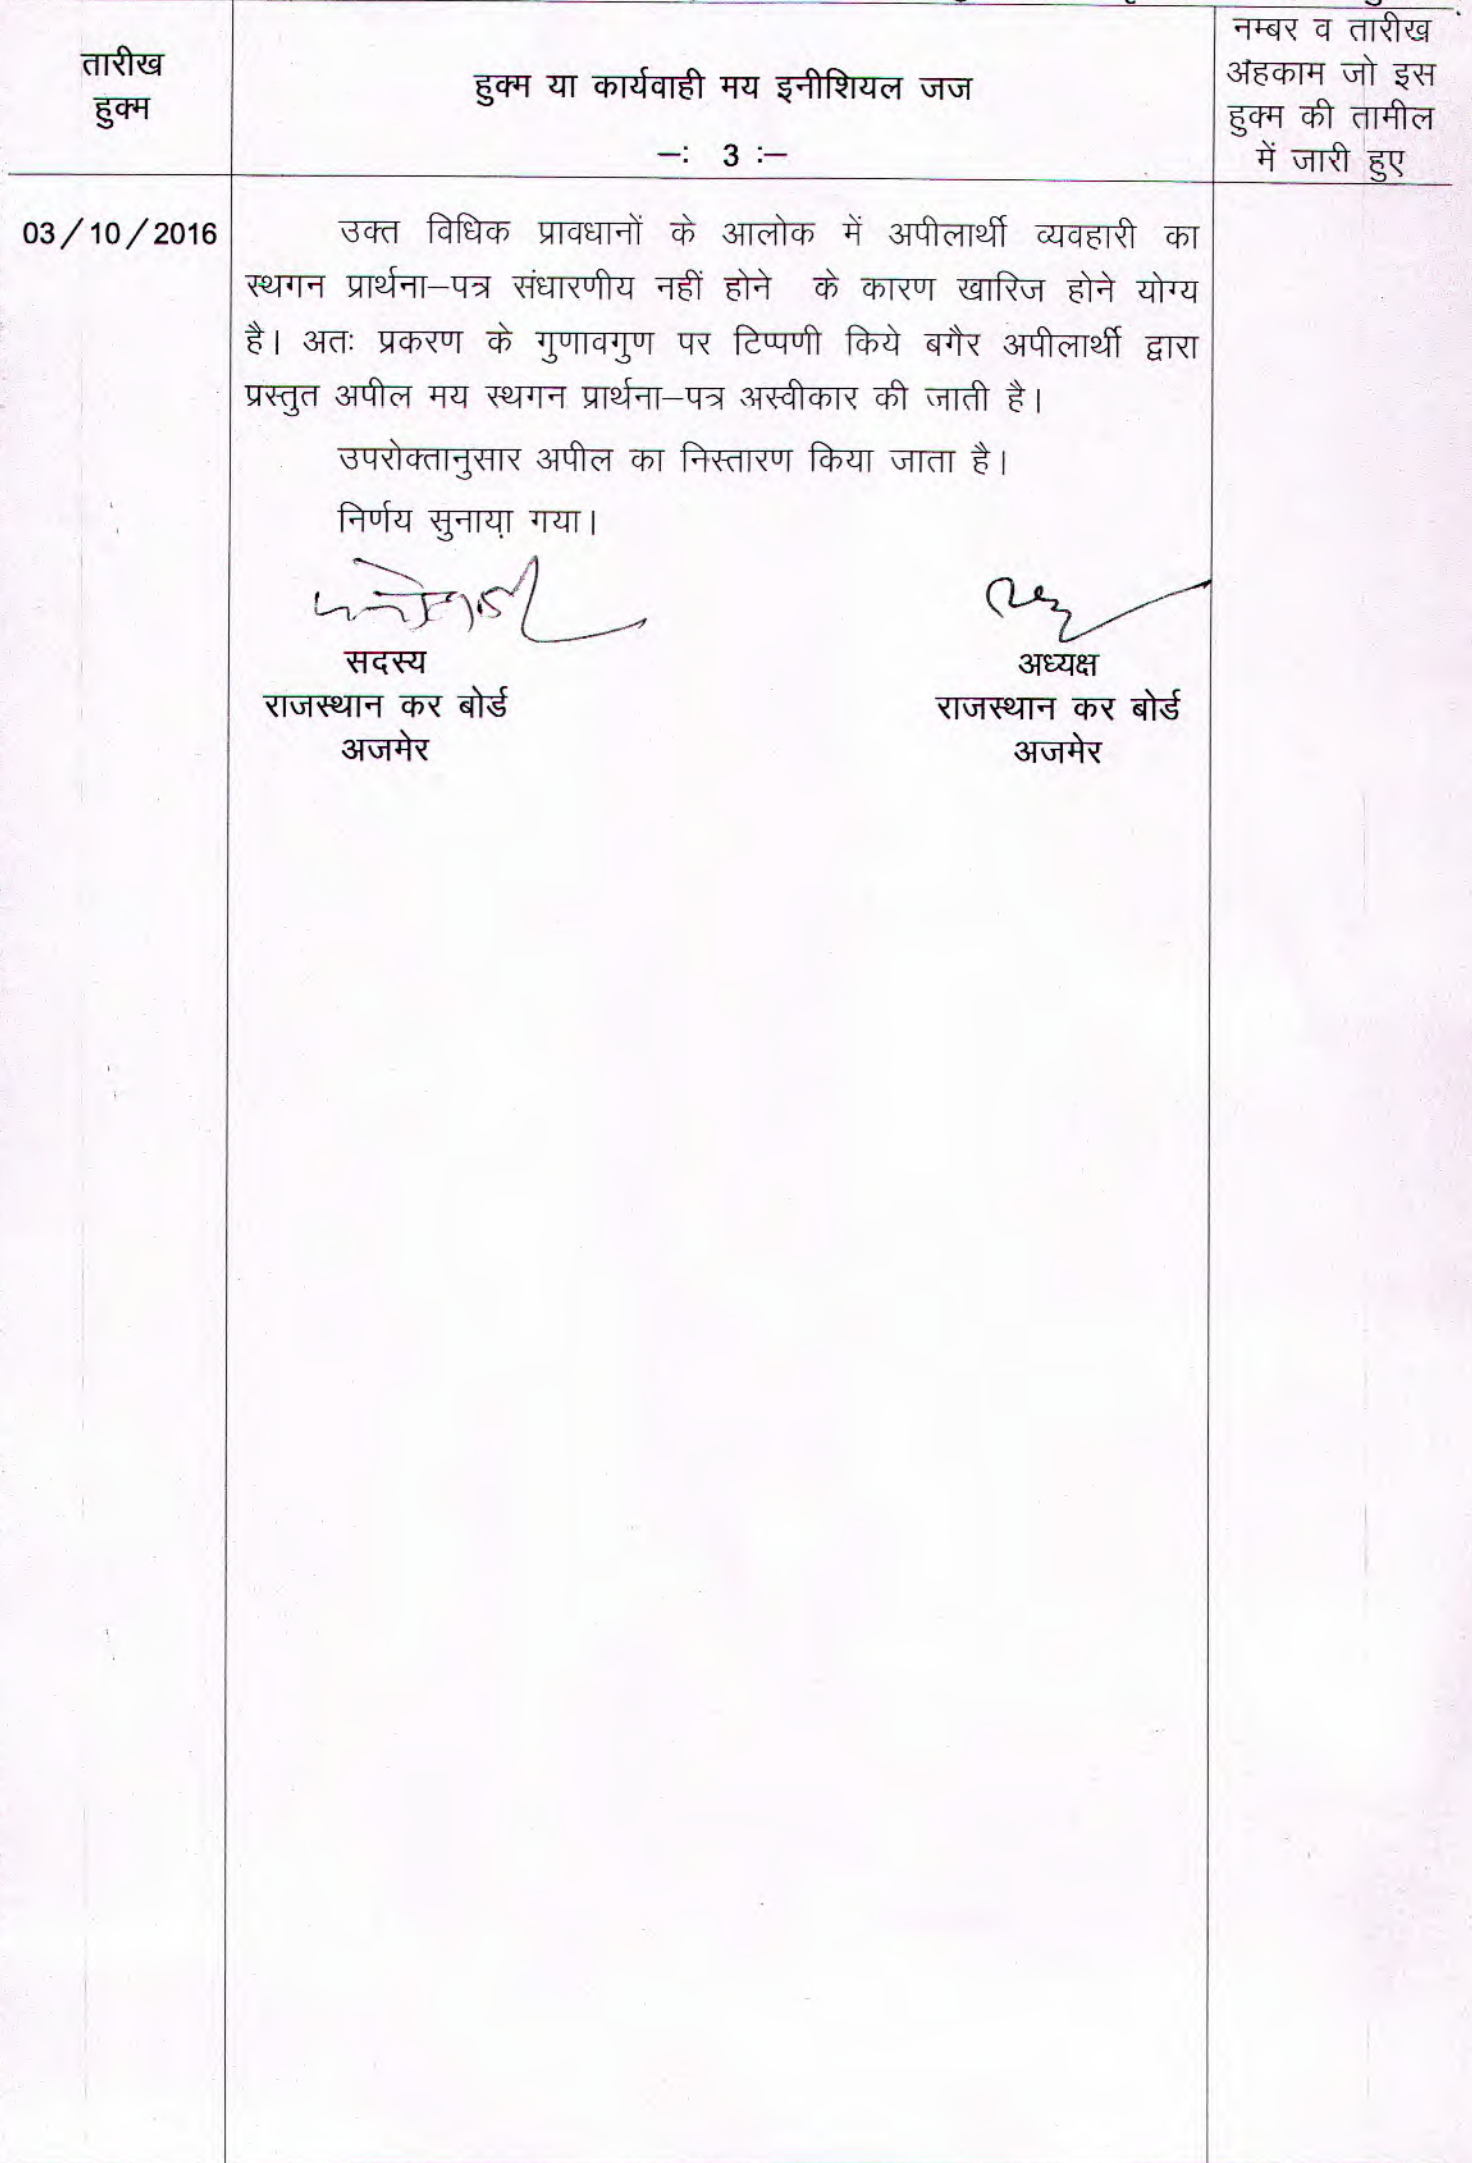 तारीख
हुक्म
हुक्म या कार्यवाही मय इनीशियल जज
–: 3 :–
नम्बर व तारीख
अहकाम जो इस
हुक्म की तामील
में जारी हुए
03/10/2016
उक्त विधिक प्रावधानों के आलोक में अपीलार्थी व्यवहारी का
स्थगन प्रार्थना–पत्र संधारणीय नहीं होने के कारण खारिज होने योग्य
है। अतः प्रकरण के गुणावगुण पर टिप्पणी किये बगैर अपीलार्थी द्वारा
प्रस्तुत अपील मय स्थगन प्रार्थना–पत्र अस्वीकार की जाती है।
उपरोक्तानुसार अपील का निस्तारण किया जाता है।
निर्णय सुनाया गया।
सदस्य
राजस्थान कर बोर्ड
अजमेर
अध्यक्ष
राजस्थान कर बोर्ड
अजमेर